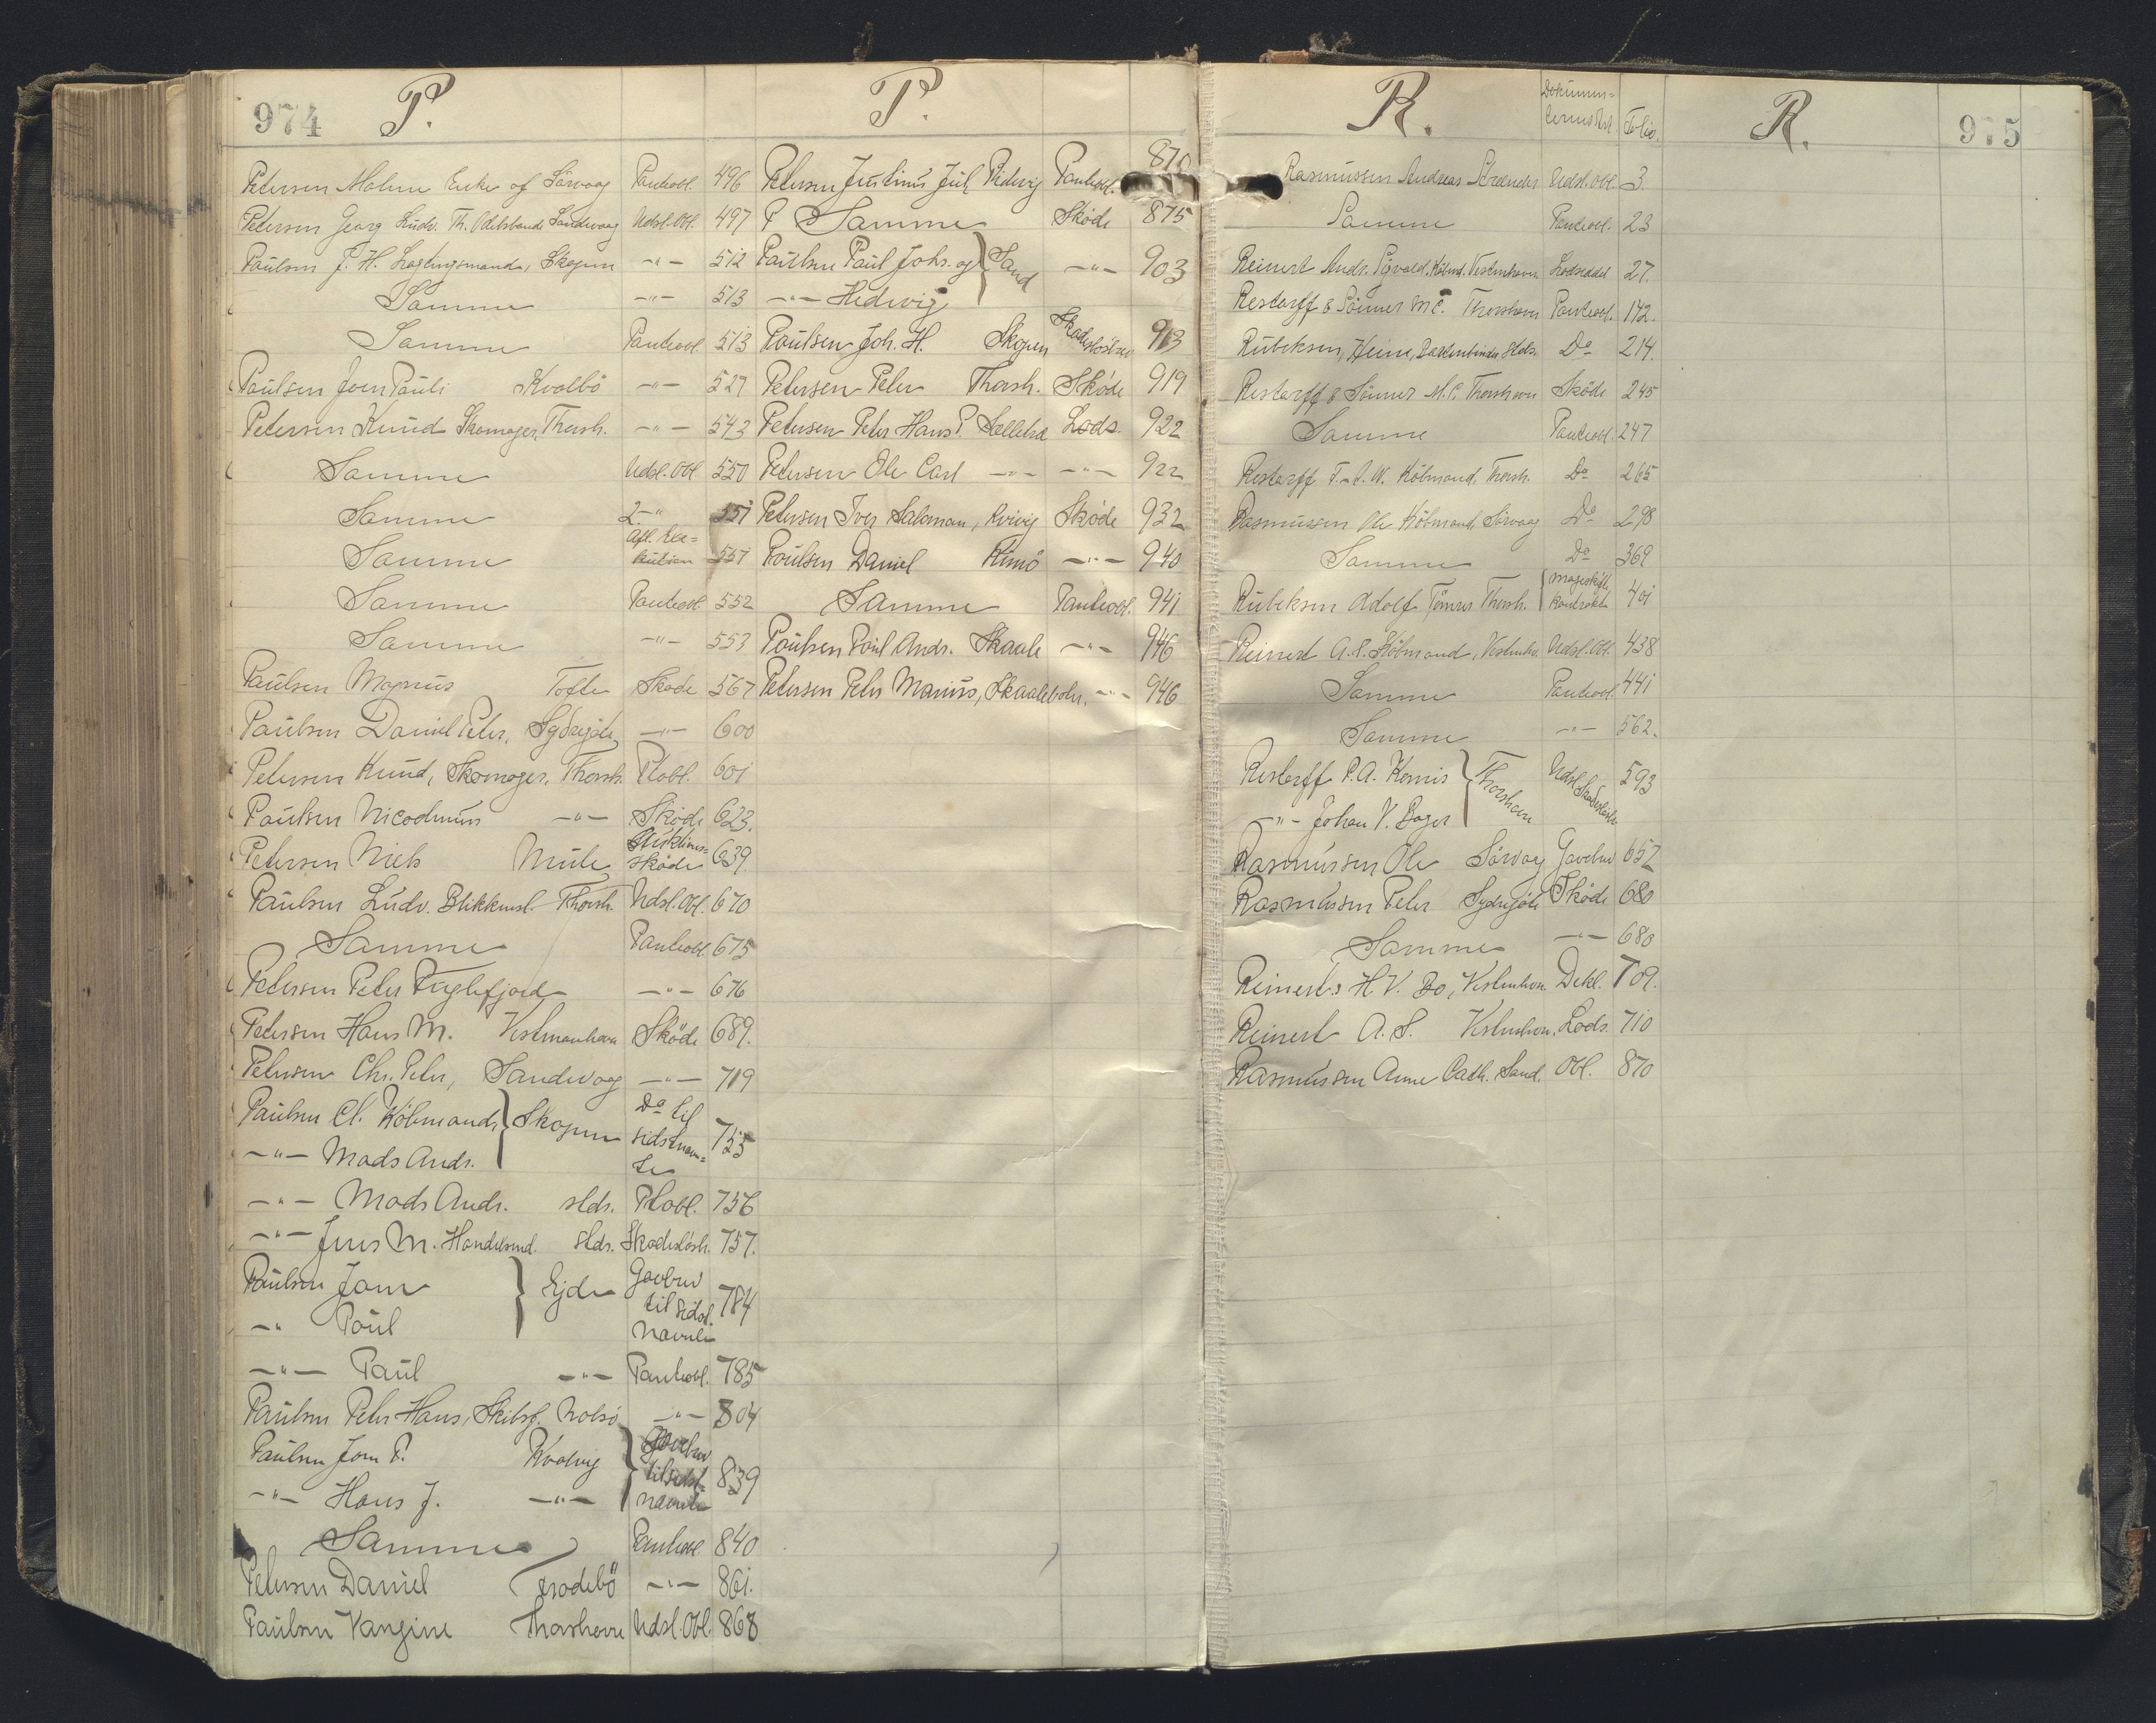 974 P.
Petersen Malene Enke af Sörvaag Panteobl. 496
Petersen Georg Ludv. Th. Odelsbonde Sandevaag Udsl.Obl. 497
Paulsen J. H. Lagtingsmand, Skopen -"- 512
Samme -"- 513
Samme Panteobl. 513
Paulsen Joen Pauli Kvalbö -"- 527
Petersen Knud Skomager, Thorsh. -"- 543
Samme Udsl.-Obl 550
Samme 2-" 551
Samme Afl. Exe=
kution 551
Samme Panteobl 552
Samme -"- 553
Paulsen Magnus Tofte Sköde 567
Paulsen Daniel Peter, Sydregöte -"- 600
Petersen Knud, Skomager, Thorsh. Ptobl. 601
Paulsen Nicodemus -"- Sköde 623.
Petersen Niels Mule Auktions=
sköde 639.
Paulsen Ludv. Blikkensl. Thorsh. Udsl.Obl. 670
Samme Panteobl. 675
Petersen Peter Fuglefjord -"- 676
Petersen Hans M. Vestmanhavn Sköde 689.
Petersen Chr. Peter, Sandevaag -"- 719
Paulsen Cl. Köbmand } Skopen Do til
sidstnævn=
te 755
-"- Mads Andr.
-"- Mads Andr. stds. Ptobl. 756
-"- Jens M. Handelsmd. stds. Skadeslösb. 757.
Paulsen Joen } Ejde Gavebrev
til sidst.
nævnte 784
-" Poul
-"- Paul -"- Panteobl. 785
Paulsen Peter Hans, Skibsf. Nolsö -"- 804
Paulsen Joen P. Kvalvig } Gavebrev
til sidst-
nævnte 839
-"- Hans J. -"-
Samme Panteobl. 840
Petersen Daniel Frodebö -"- 861.
Paulsen Vangine Thorshavn Udsl.Obl. 868
P.
Petersen Justinus Juh Panteobl. 870
P Samme Sköde 875
Paulsen Paul Johs. og } Sand -"- 903
-"- Hedevig
Paulsen Joh. H. Skopen Skadeslösbrev 913
Petersen Peter Thorsh. Sköde 919
Petersen Peter Hans P. Lods. 922
Petersen Ole Carl -"- -"- 922
Petersen Iver Salomon, Sköde 932
Poulsen Daniel Kunö -"- 940
Samme Panteobl. 941
Paulsen Poul Andr. Skaale -"- 946
Petersen Peter Marius, Skaalebotn. -"- 946
R. Dokumen=
ternes Art. Folio.
Rasmussen Andreas Udsl.obl. 3.
Samme Panteobl. 23
Reinert Andr. Sigvald, Köbmd. Vestmhavn Lodseddel 27.
Restorff & Sönner M.C. Thorshavn Panteobl. 172.
Rubeksen, Heine, stds. Do 214.
Restorff & Sönner M.C. Thorshavn Sköde 245
Samme Panteobl. 247
Restorff T.-A.W. Köbmand, Thorsh. Do 265
Rasmussen Ole Köbmand, Sörvaag Do 298
Samme Do 369
Rubeksen Adolf, Tömrer Thorsh. { Mageskifte
kontrakt 401
Reinert A.S. Köbmand, Vestmhv. Udsl.Obl. 438
Samme Panteobl. 441
Samme -"- 562.
Restorff P.A. } Thorshavn Udsl. Skadeslösbr 593
-"- Johan V.
Rasmussen Ole Sörvaag Gavebrev 657
Rasmussen Peter Sydregöte Sköde 680
Samme -"- 680
Reinerts H V. Bo, Vestmhavn. Dekl. 709.
Reinert A. S. Vestmhavn. Lods. 710
Rasmussen Anne Cath. Sand. Obl. 870
R. 975